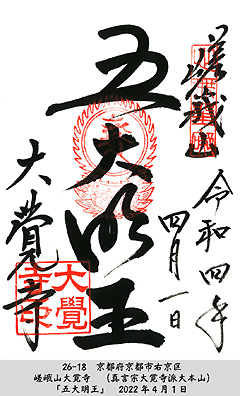 嵯峨山
五大明王
令和四年
四月一日
大覺寺
大覺
寺印
26-18 京都府京都市右京区
嵯峨山大覚寺 (真言宗大覚寺派大本山)
「五大明王」 2022年4月1日